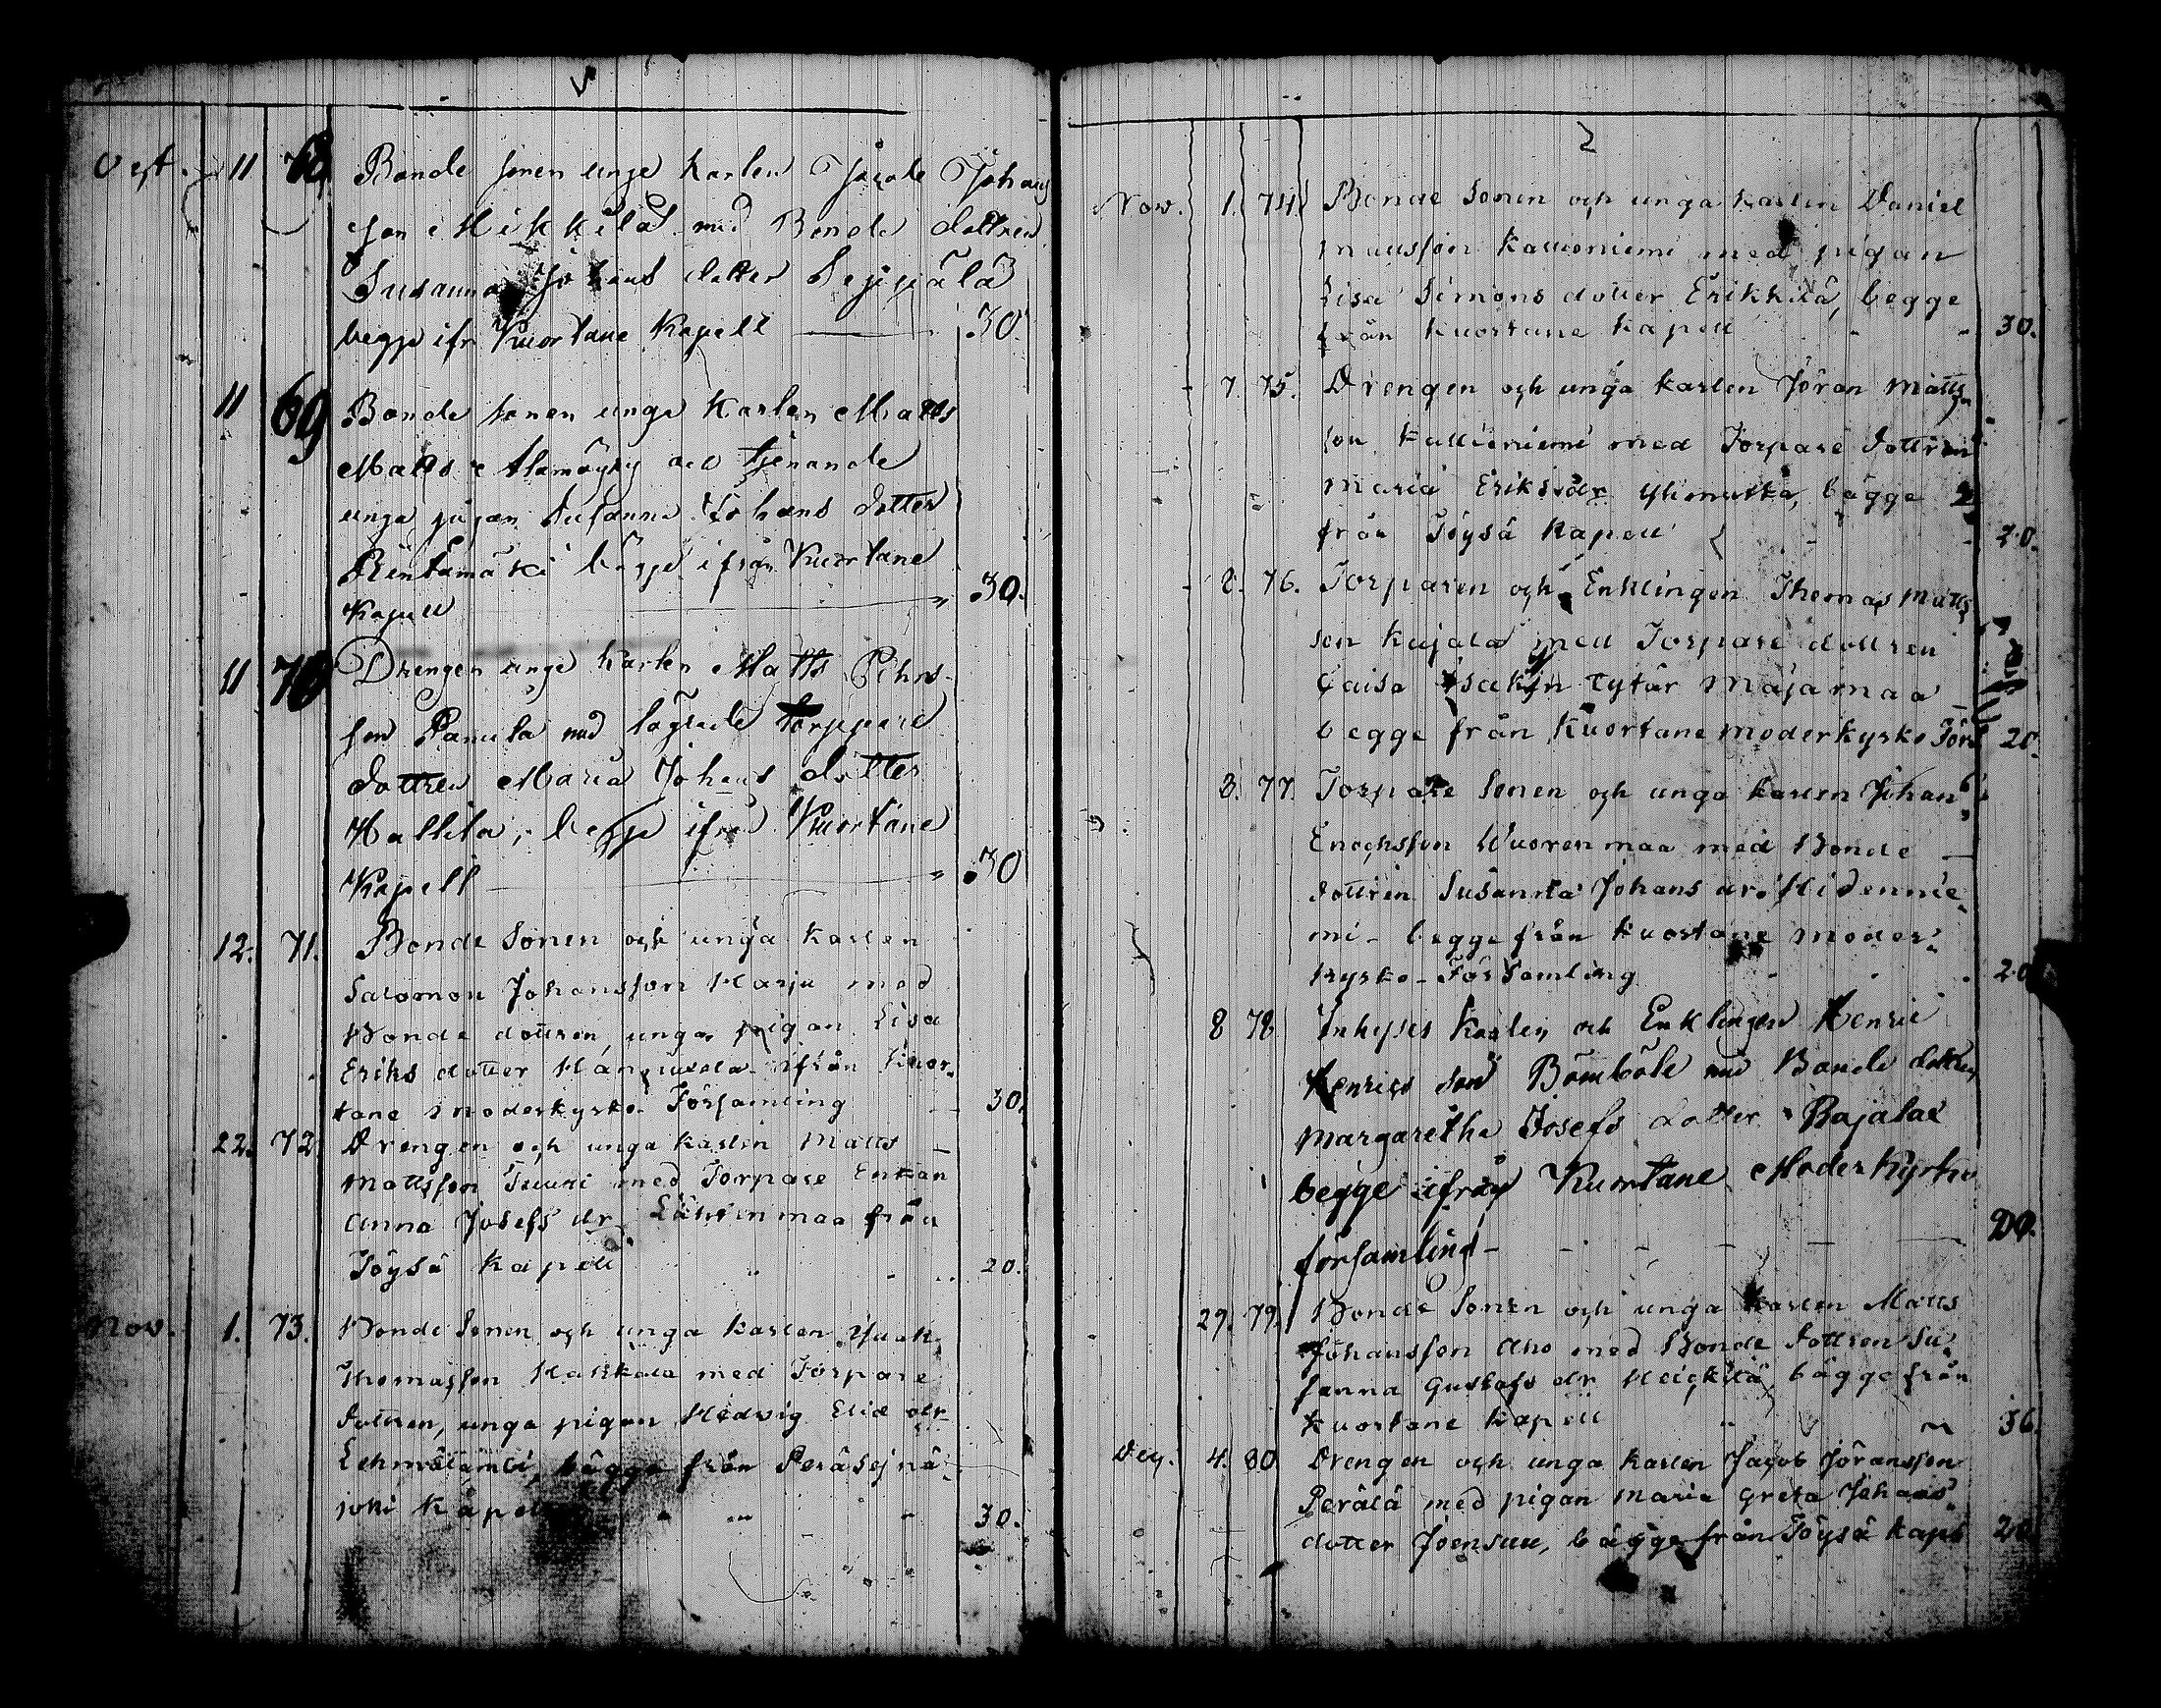 Oct. 11 68 Bonde sonen unge karlen Johans
son Mikkilä med Bonde dottren
Susanna Johans dotter Seppälä
begge ifr Kuortane Kapell 30.
11 69 Bonde sonen unge Karlen Matts
Matts Alamäyry och tjenande
unge pigan Susanna Johans dotter
Rintamäki bägge ifrån Kuortane
Kapell " 30.
11 70 Drengen unge karlen Matts
son Panula med torppare
dottren Maria Johans dotter
Hallila, begge ifrå Kuortane
Kapell " 30
12. 71. Bonde Sonen och unga karlen
Salomon Johansson Harju med
Bonde dottren, unga pigan Lisa
Eriks dotter ifrån Kuor-
tane moderkyrko Församling 30.
22. 72. Drengen och unga karlen Matts
Mattsson Tuuri med Torpare Enkan
Anna Josefs dr Lähteenmaa från
Töysä Kapell 20.
Nov. 1. 73. Bonde Sonen och unga karlen
Thomasson Hakkala med Torpare
dottren, unga pigan Hedvig Elid dr
bägge från Peräsejnä-
joki Kapell 30.
2
Nov. 1. 74. Bonde Sonen och unga karlen Daniel
Mattsson Kallioniemi med pigan
Lisa Simons dotter Erikkilä, begge
från Kuortane Kapell 30.
7. 75. Drengen och unga karlen Jöran Matts-
son Kallioniemi med Torpare dottren
Maria Eriksdr Ylimutka, bägge
från Töysä Kapell 20.
8. 76. Torparen och Enklingen Thomas Matts
son Kujala med Torpare dottren
Caisa Isakin tytär Mäjamaa
begge från Kuortane moderkyrko För 20.
8. 77. Torpare Sonen och unga karlen Johan
Enochsson Wuorenmaa med Bonde
dottren Susanna Johans dr Hidennie-
mi - begge från Kuortane moder-
kyrko - Församling 20
8 78. Inhyses Karlen och Enklingen Henric
Henrics son Bömböle med Bonde dottren
Margaretha Josefs dotter Rajalac
begge ifrån Kuortane Moderkyrko
församling - 20.
29. 79. Bonde Sonen och unga karlen Matts
Johansson Aho med Bonde dottren Su-
sanna Gustafs dr Heickilä, bägge från
Kuortane Kapell 36.
Dec. 4. 80 Drengen och unga karlen Jacob Jöransson
Perälä med pigan Maria Greta Johans-
dotter Joensuu, bägge från Töysä Kapl 20